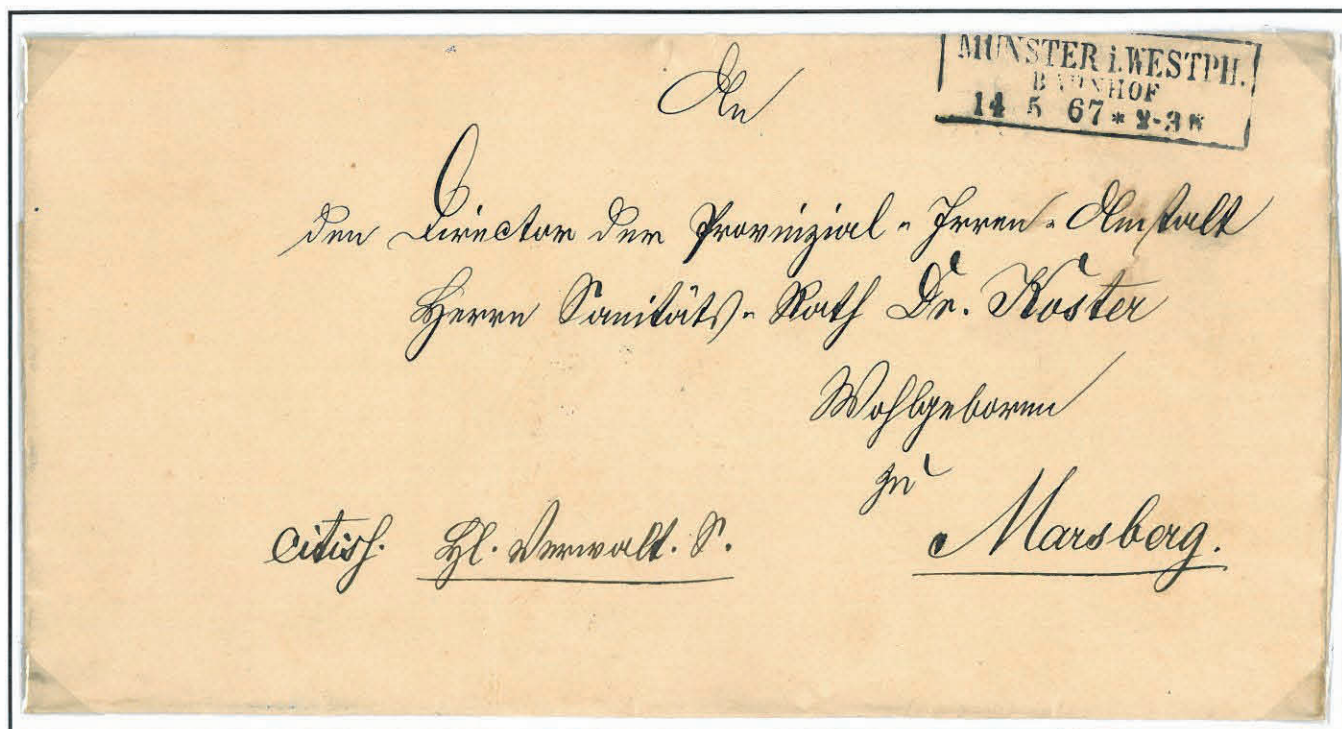 MÜNSTER i. WESTPH.
BAHNHOF
14 5 67 * 2-3 N
An
den Director der Provinzial-Irren-Anstalt
Herrn Sanitäts-Rath Dr. Koster
Wohlgeboren
zu
Marsberg.
Verwalt. S.